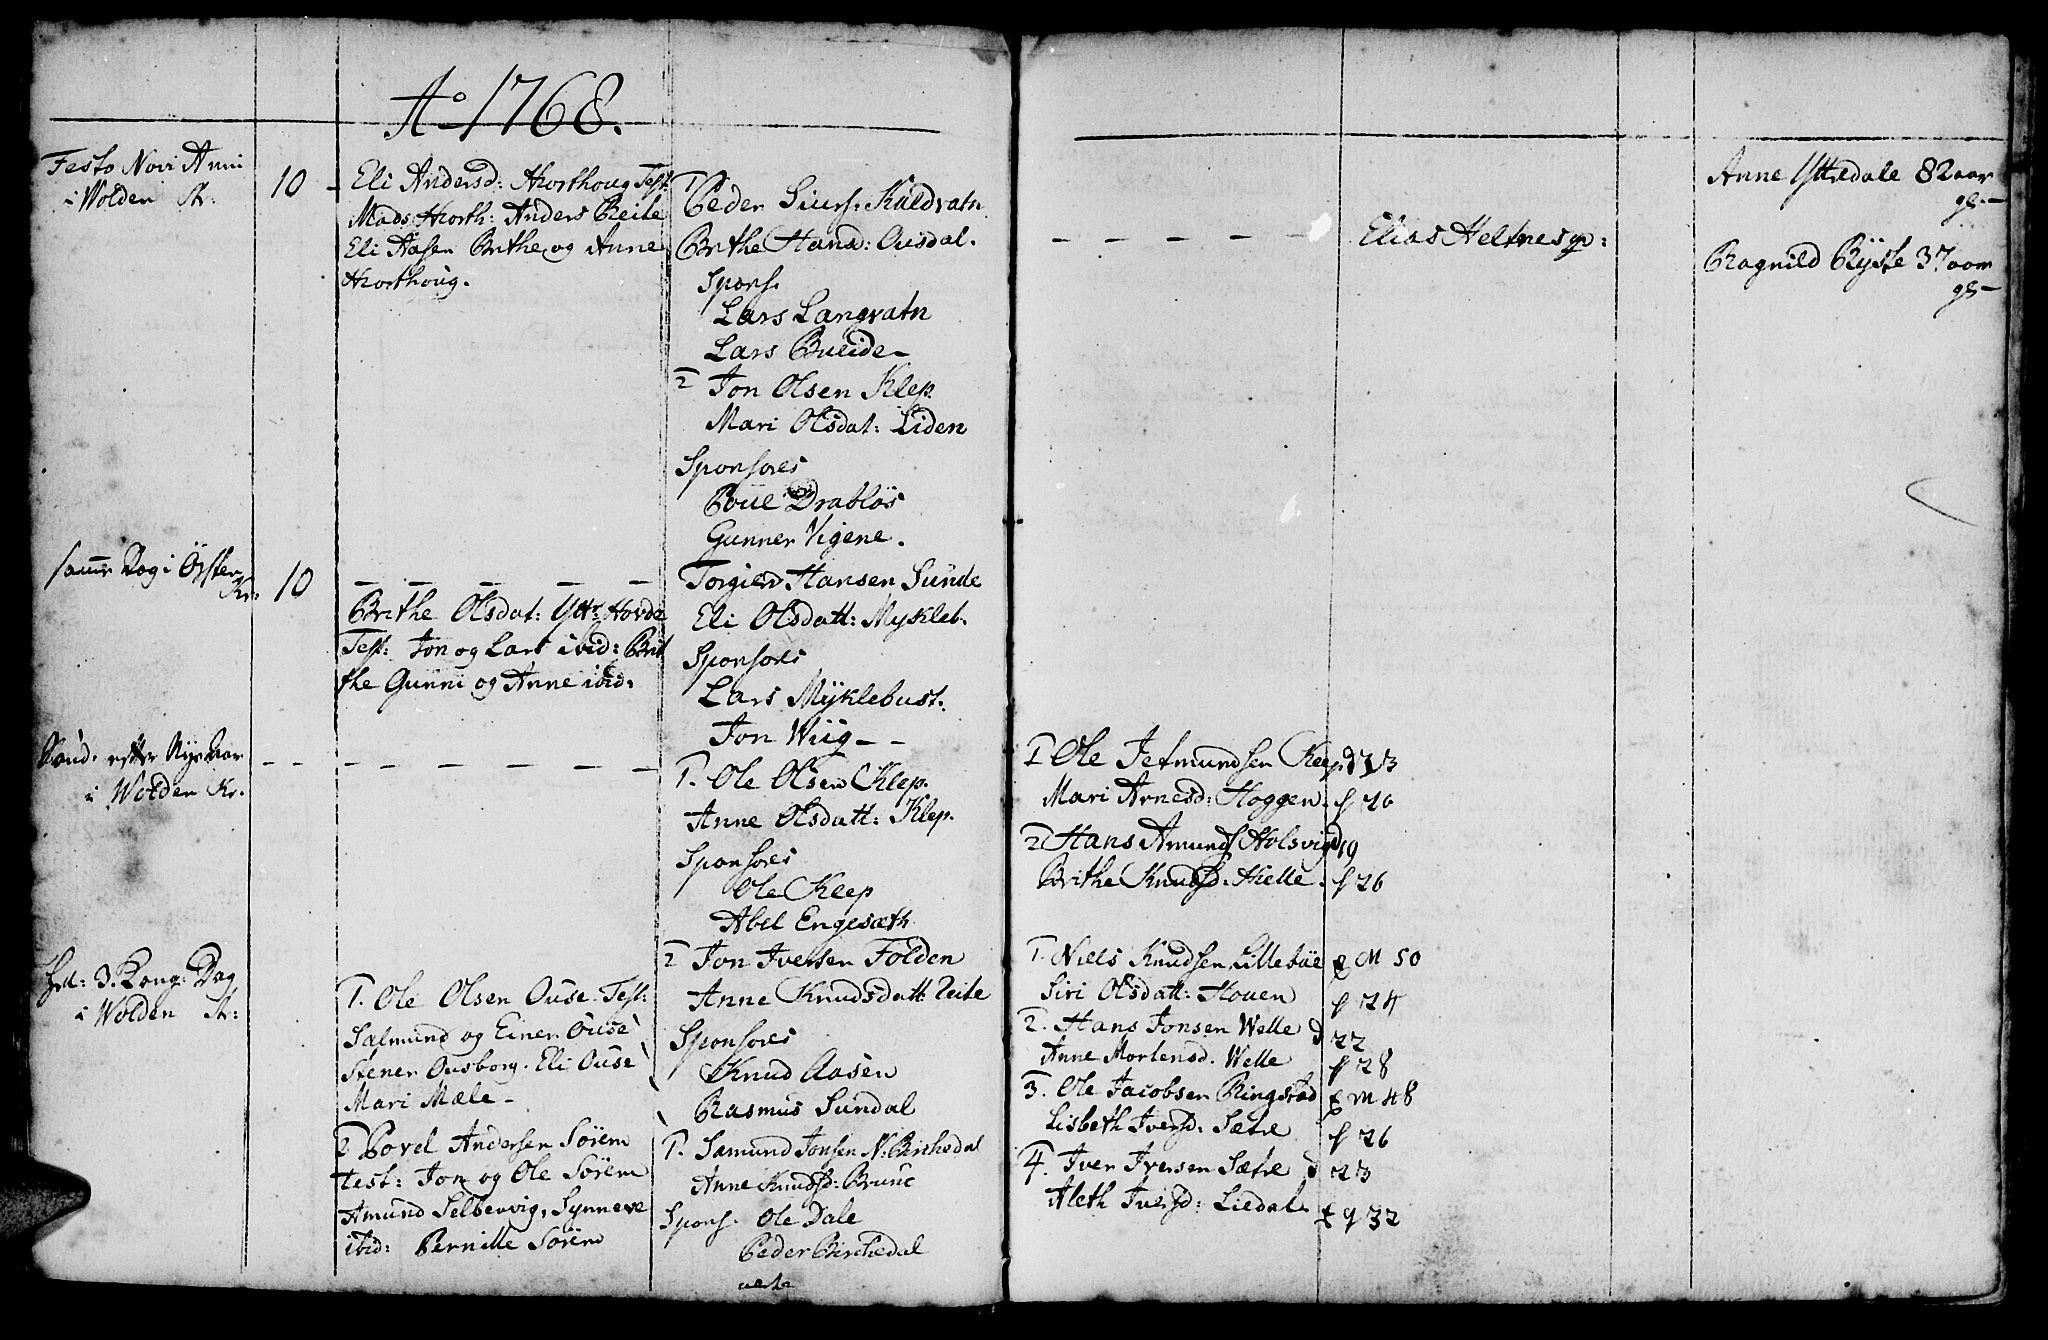 Ao 1768.
Festo Novi Anni
i Wolden K:
10
Eli Andersd: Aarthoug Test.
Mads Aarth: Anders Reite
Eli Aasen Brithe og Anne
Aarthoug.
1 Peder Siurs: Kaldvatn
Brithe Hansd: Ousdal.
Spons.
Lars Langvatn
Lars Bueide
2 Jon Olsen Klep.
Mari Olsdat: Liden
Sponsores
Poul Drabløs
Gunner Vigene.
samme Dag i Ørsten
Kr:
10
Brithe Olsdat: Ytt: Hovde
Test: Jon og Lars ibid: Brit
the Gunni og Anne ibid:
Torgier Hansen Sunde
Eli Olsdatt: Mykleb.
Sponsores
Lars Myklebust.
Jon Wiig
Sønd. efter Nyt Aar
i Wolden Kr.
1. Ole Olsen Klep.
Anne Olsdatt: Klep.
Sponsores
Ole Klep
Abel Engesæth
2 Jon Iversen Folden
Anne Knudsdatt: Reite
Sponsores
Knud Aasen
Rasmus Sundal
Hel: 3. Kong: Dag
i Wolden K:
1. Ole Olsen Ouse. Test:
Salmund og Einer Ouse
Stener Ousborg. Eli Ouse
Mari Mæle
2 Povel Andersen Sørem
test: Jon og Ole Sørem
Amund Selbervig, Synneve
ibid: Pernille Sørem
1. Samund Jonsen N: Birchedal
Anne Knudsd: Brune
Spons. Ole Dale
Peder Birchedal
vert
Elias Heltnes
Anne Yttredale 82 aar
Ragnild Ryste 37 aar
1 Ole Jetmundsen Klep
Mari Arnesd: Hoggen. f 26
2 Hans Amunds Holsvig d 19
Brithe Knudsd. Hielle. f 26
1. Niels Knudsen Lillebøe E M 50
Siri Olsdatt: Houen f 24
2. Hans Jonsen Welle d 22
Anne Mortensd. Welle f 28
3. Ole Jacobsen Ringstad E M 48
Lisbeth Iversd: Sætre f 26
4. Iver Iversen Sætre d 23
Aleth Iversd: Liedal E q 32